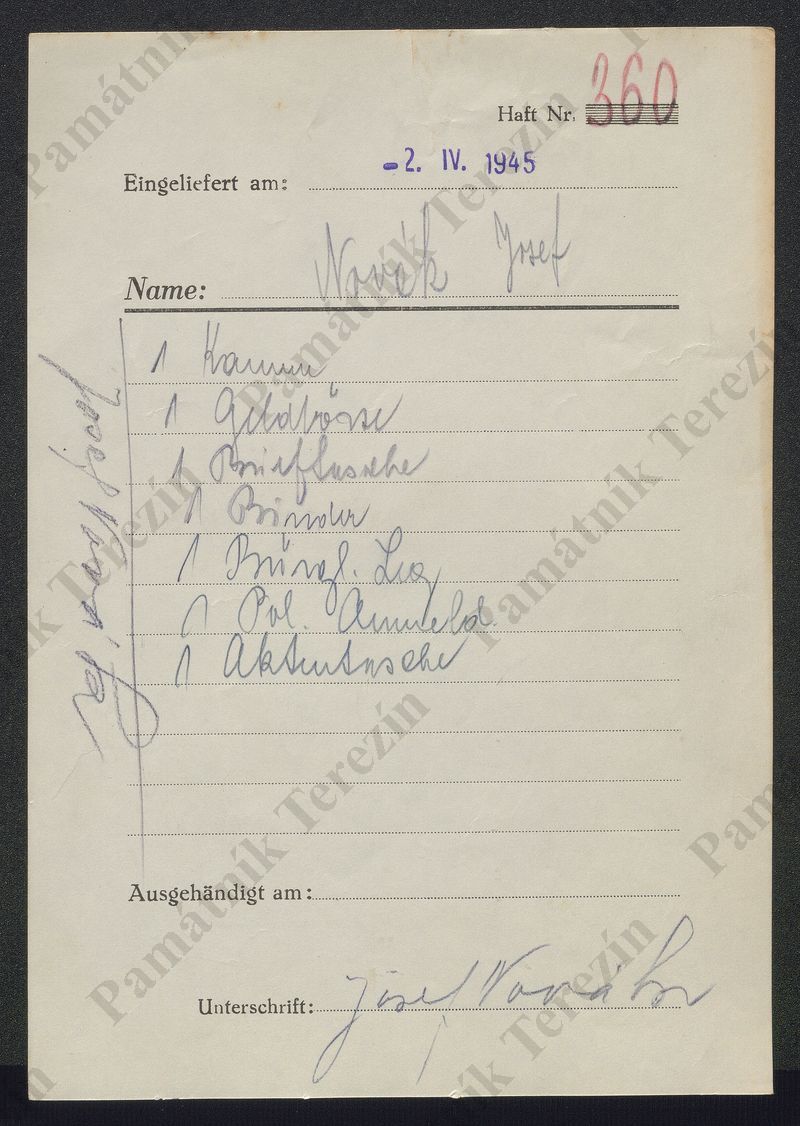 Haft Nr. 360
Eingeliefert am: -2. IV. 1945
Name: Novák Josef
1 Kamm
1 Geldbörse
1 Brieftasche
1 Binder
1 Bürgl. Leg.
1 Pol. Anmeld.
1 Aktentasche
Ausgehändigt am:
Unterschrift: Josef Novák
Památník Terezín